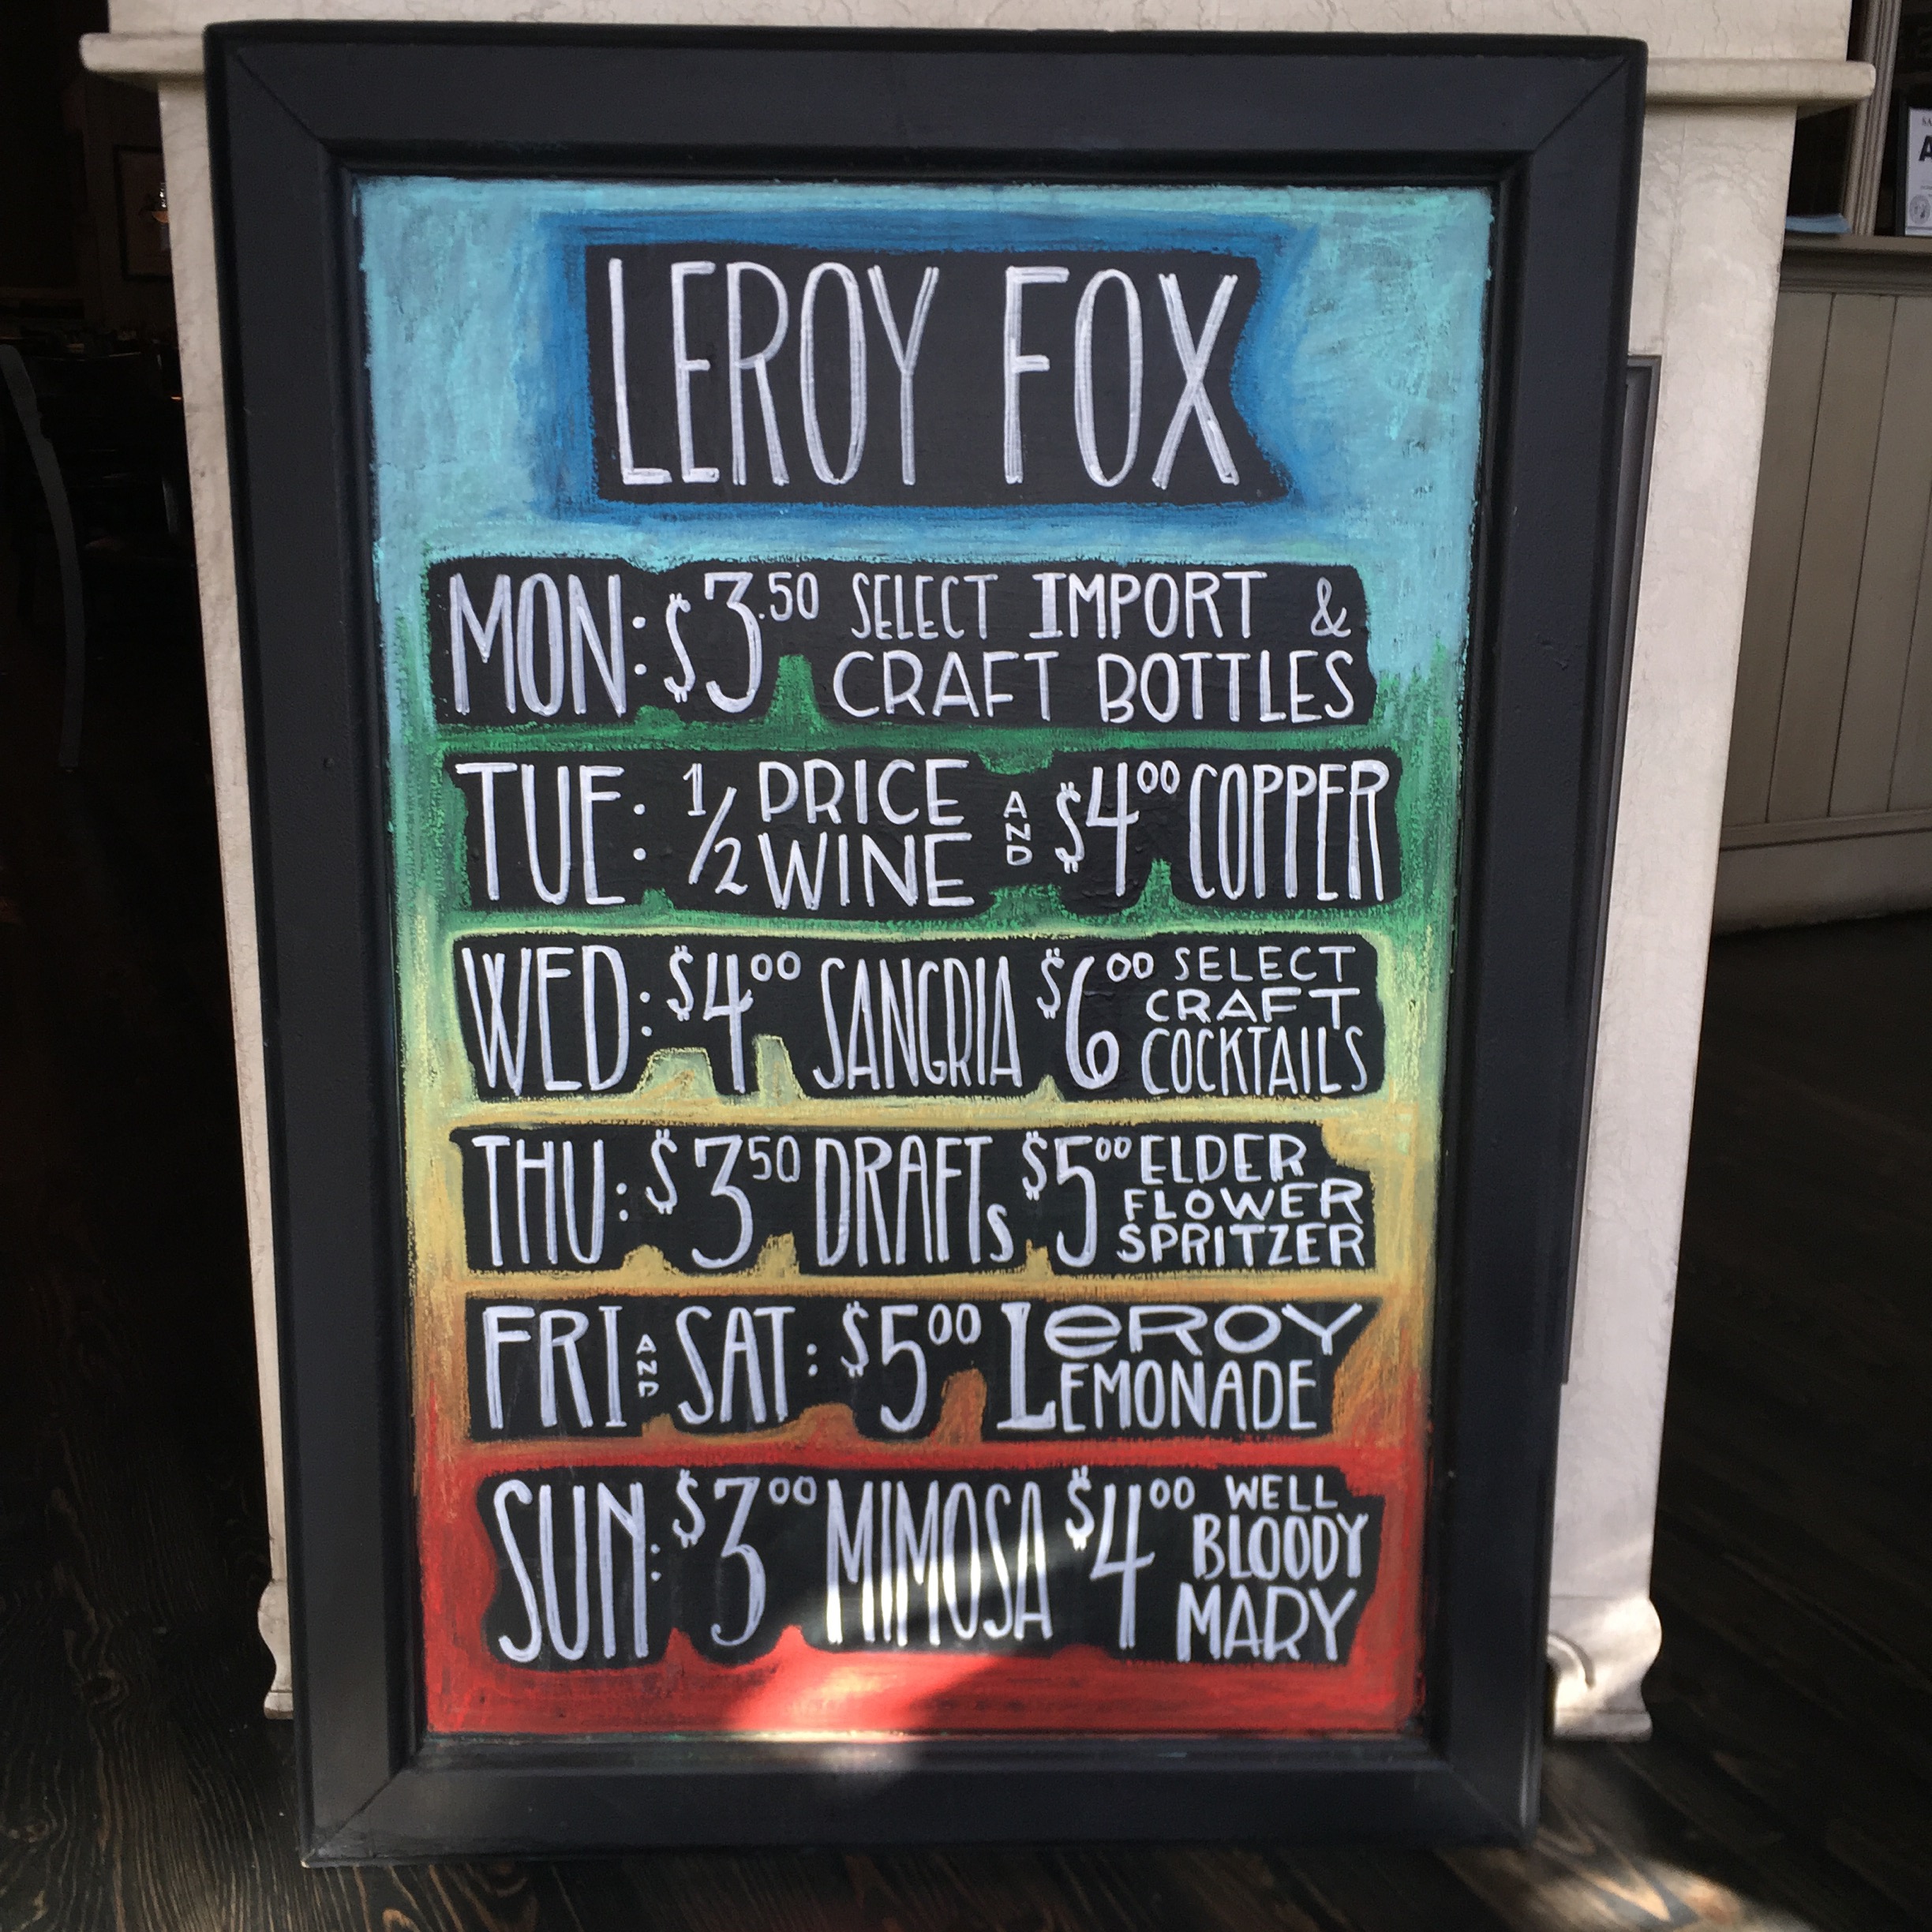 LEROY FOX
MON: $3.50 SELECT IMPORT &
CRAFT BOTTLES
TUE: 1/2 PRICE WINE AND $4.00 COPPER
WED: $4.00 SANGRIA $6.00 SELECT
CRAFT
COCKTAILS
THU: $3.50 DRAFTs $5.00 ELDER
FLOWER
SPRITZER
FRI AND SAT: $5.00 LeROY
LEMONADE
SUN: $3.00 MIMOSA $4.00 WELL
BLOODY
MARY